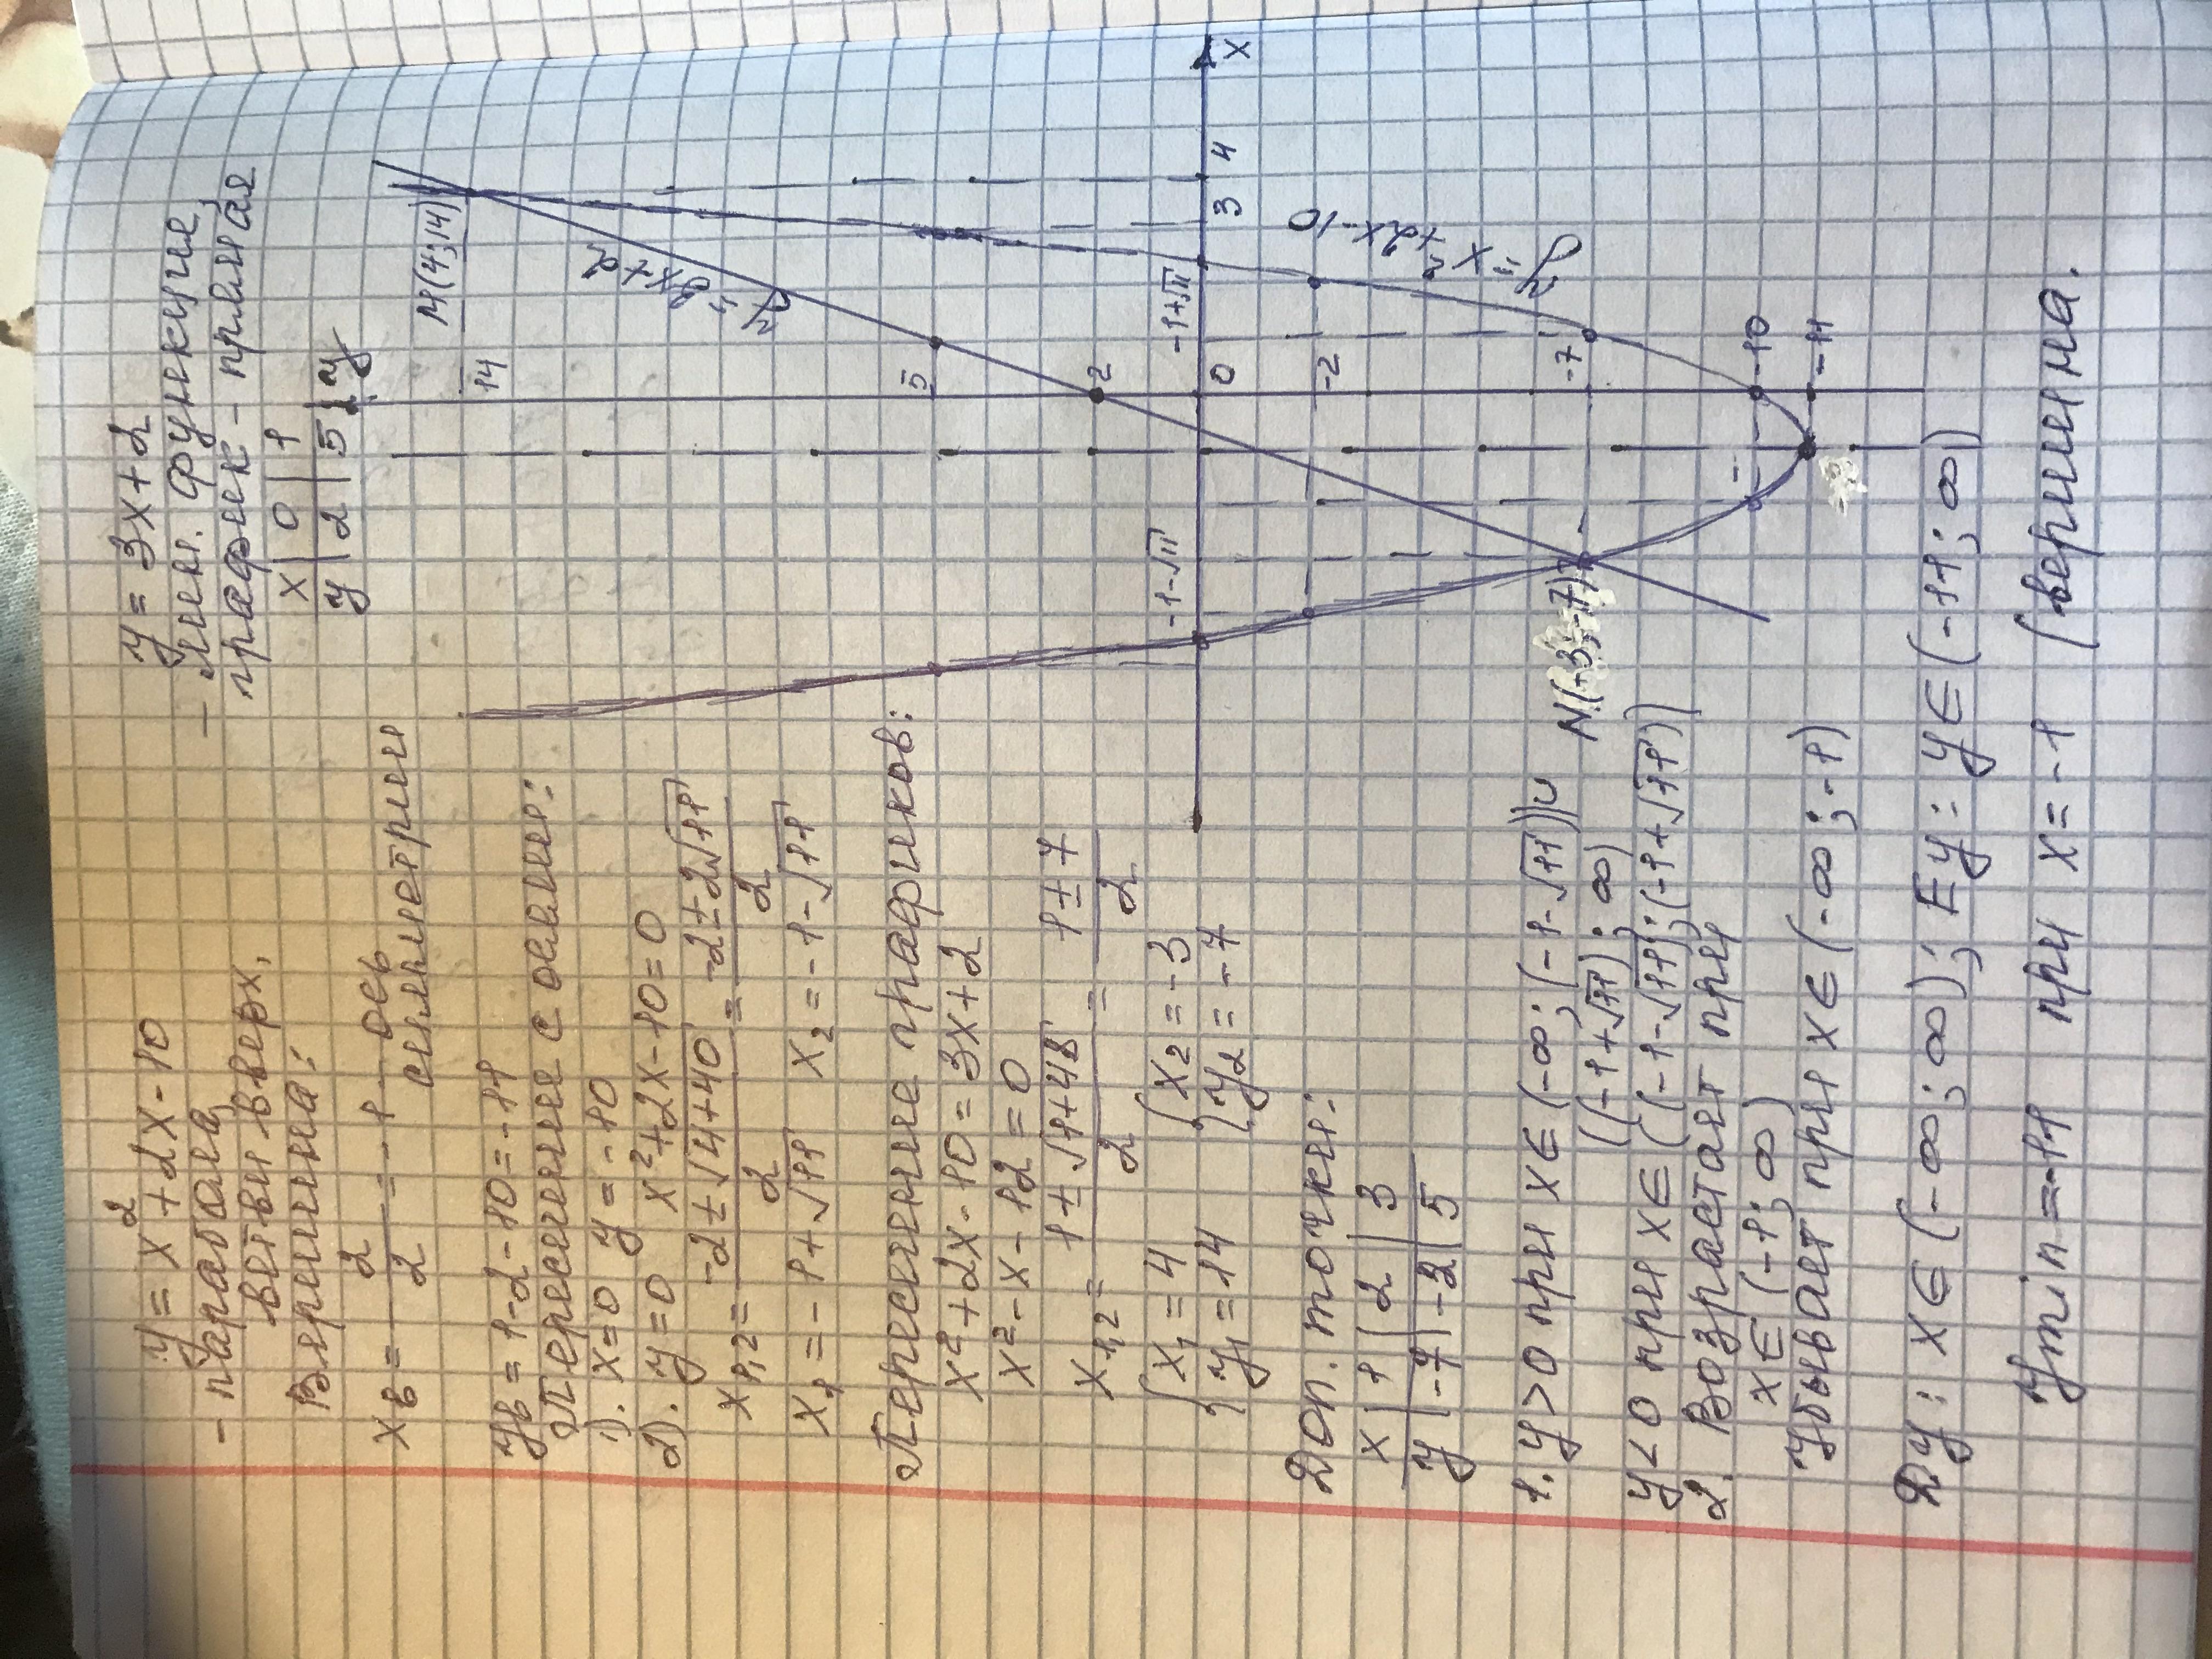 y = x² + 2x - 10
- парабола,
ветви вверх.
Вершина:
xв = - 2/2 = -1 - ось
симметрии
yв = 1 - 2 - 10 = -11
Пересечение с осями:
1). x=0 y = -10
2). y=0 x²+2x-10=0
x1,2 = (-2 ± √(4+40))/2 = (-2 ± 2√11)/2
x1 = -1+√11 x2 = -1-√11
Пересечение графиков:
x² + 2x - 10 = 3x + 2
x² - x - 12 = 0
x1,2 = (1 ± √(1+48))/2 = (1 ± 7)/2
{ x1 = 4 { x2 = -3
{ y1 = 14 { y2 = -7
Доп. точки:
x | 1 | 2 | 3
y | -7 | -2 | 5
1. y > 0 при x ∈ (-∞; (-1-√11)) ∪
((-1+√11); ∞)
y < 0 при x ∈ ((-1-√11); (-1+√11))
2. Возрастает при
x ∈ (-1; ∞)
Убывает при x ∈ (-∞; -1)
Dy: x ∈ (-∞; ∞); Ey: y ∈ (-11; ∞)
ymin = -11 при x = -1 (вершина.
y = 3x + 2
- лин. функция,
график - прямая
x | 0 | 1
y | 2 | 5
y
14
M(4;14)
y = 3x+2
5
2
-1-√11
0
-1+√11
3
4
x
-2
y = x²+2x-10
-7
N(-3;-7)
-10
-11